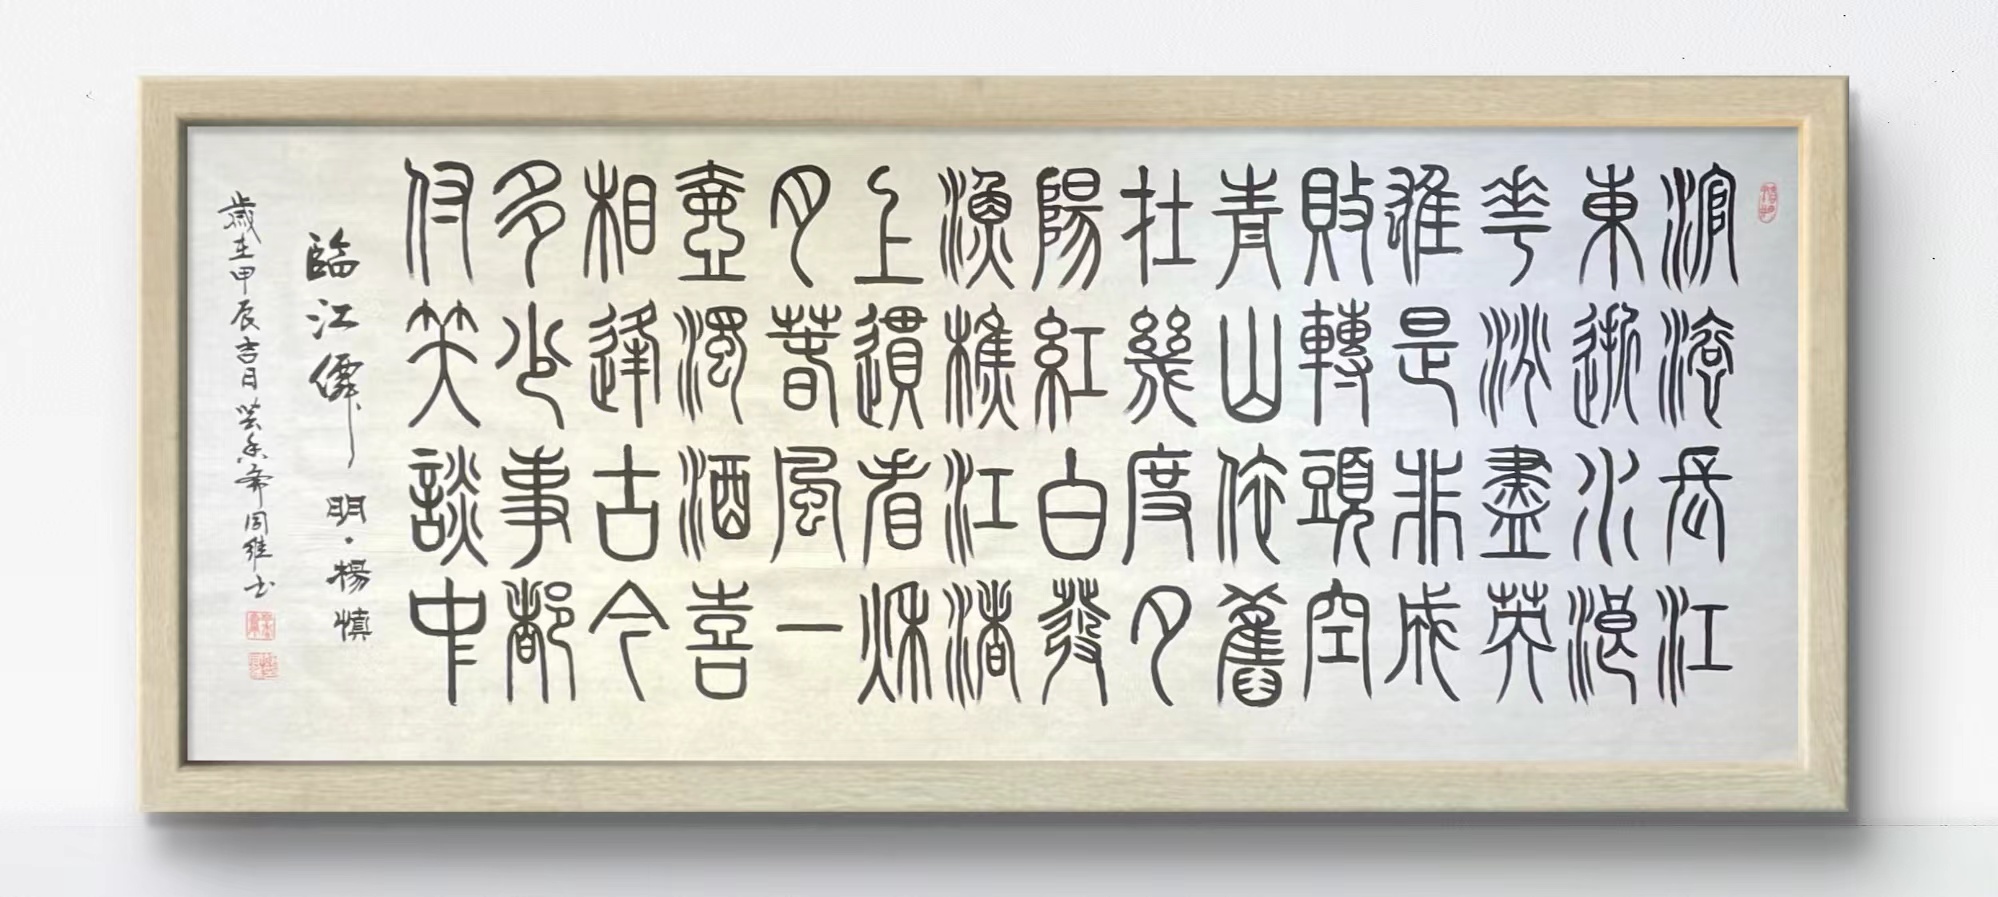 滾滾長江
東逝水浪
花淘盡英
雄是非成
敗轉頭空
青山依舊
在幾度夕
陽紅白發
漁樵江渚
上慣看秋
月春風一
壺濁酒喜
相逢古今
多少事都
付笑談中
臨江僊 明·楊慎
歲在甲辰吉日芸香齋周維书